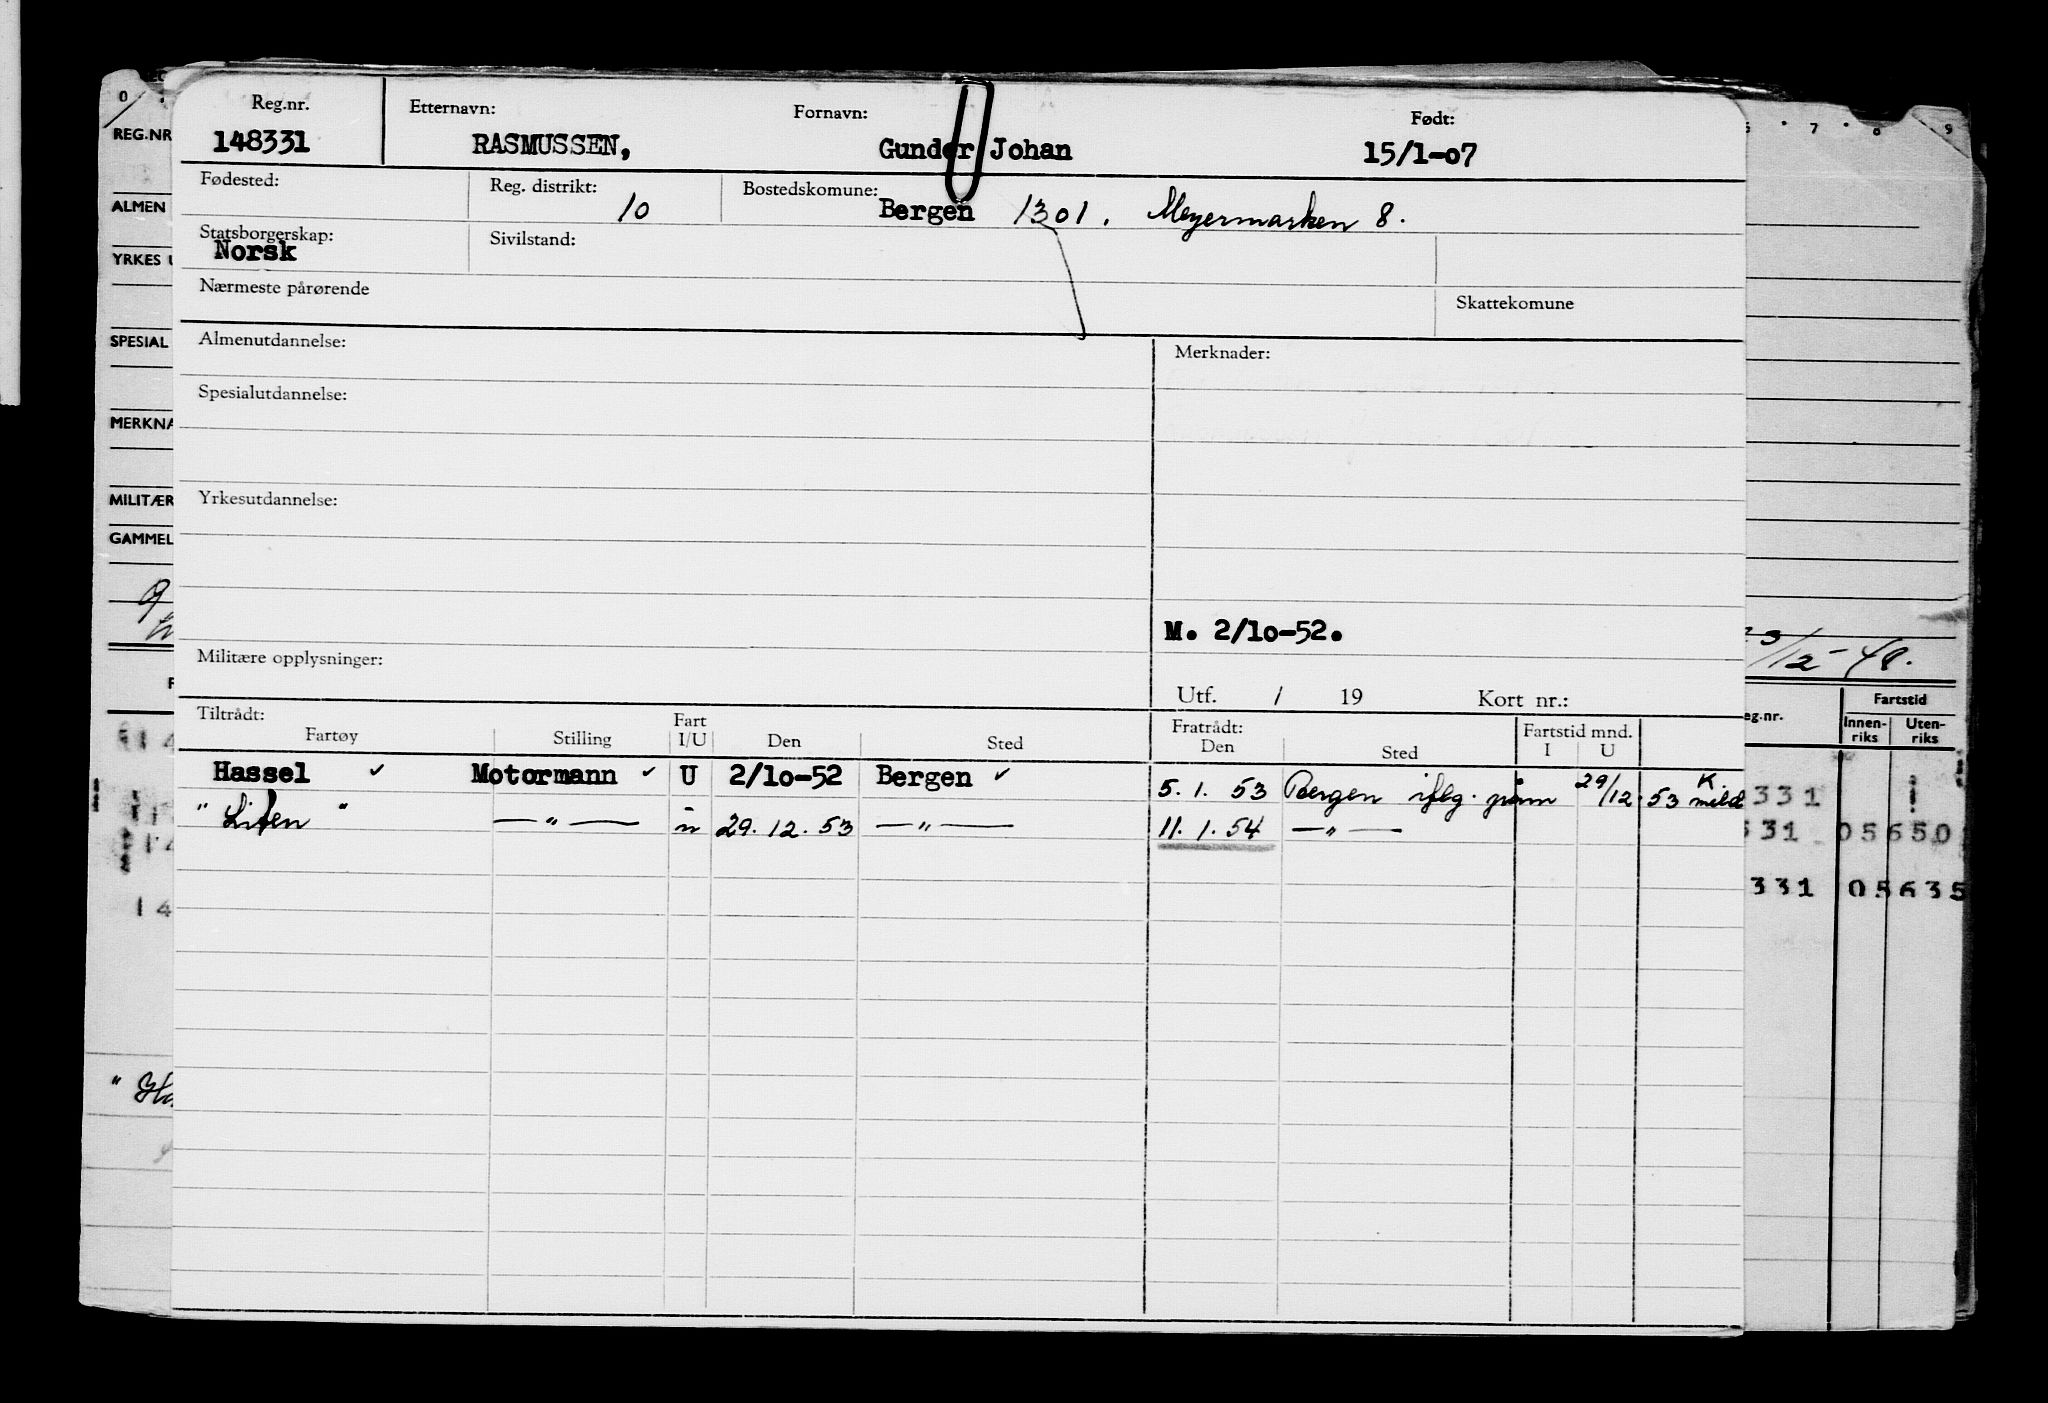 Reg.nr. Etternavn: Fornavn: Født:
148331 RASMUSSEN, Gunder Johan 15/1-07
Fødested: Reg. distrikt: 10 Bostedskomune: Bergen 1301. Meyermarken 8.
Statsborgerskap: Norsk Sivilstand:
Nærmeste pårørende Skattekomune
Almenutdannelse: Merknader:
Spesialutdannelse:
Yrkesutdannelse:
M. 2/10-52.
Militære opplysninger:
Utf. / 19 Kort nr.:
Tiltrådt: Fratrådt:
Fartøy Stilling Fart I/U Den Sted Den Sted Fartstid mnd. I U
Hassel ✓ Motormann ✓ U 2/10-52 Bergen ✓ 5. 1. 53 Bergen iflg. 29/12. 53 K. meld
" " — " — " 29. 12. 53 — " — 11. 1. 54 — " —
REG.NR
ALMEN
YRKES U
SPESIAL
MERKNA
MILITÆR
GAMMEL
7 8 9
/12-48.
eg.nr. Fartstid
Innen-riks Uten-riks
331
31 05650
331 05635
14